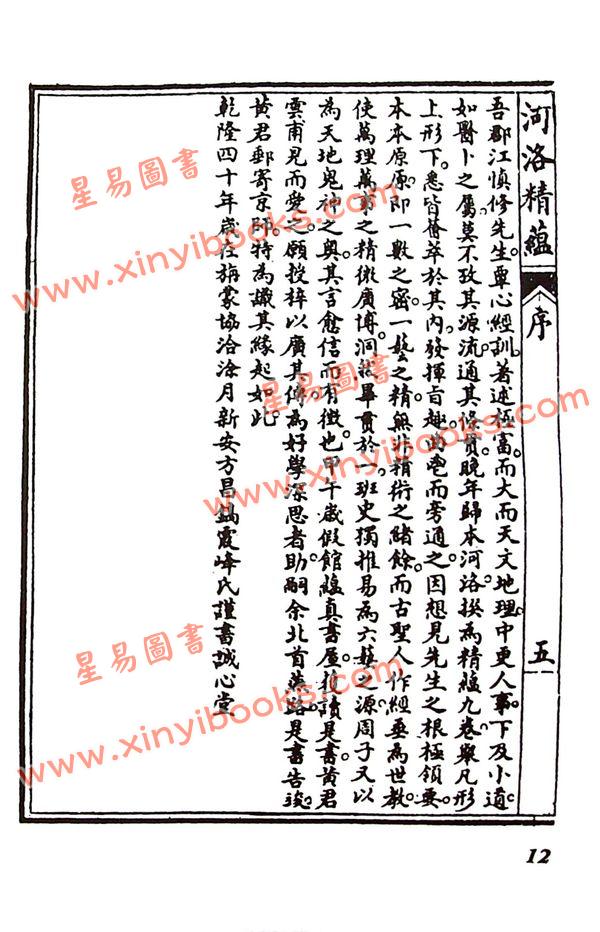 河洛精蘊
序
五
吾郡江慎修先生覃心經訓。著述極富。而大而天文地理。中更人事。下及小道。
如醫卜之屬。莫不攷其源流。通其條貫。晚年歸本河洛。撰為精蘊九卷。舉凡形
上形下。悉皆薈萃於其內。發揮旨趣。曲鬯而旁通之。因想見先生之根極領要。
本本原原。即一數之密。一藝之精。無非精術之緒餘。而古聖人作經垂為世教。
使萬理萬事之精微廣博。洞徹畢貫於一。班史獨推易為六藝之源。周子又以
為天地鬼神之奧。其言愈信而有徵也。甲午歲。假館蘊真書屋。獲讀是書。黃君
雲甫見而愛之。願授梓以廣其傳。為好學深思者助。嗣余北首燕路。是書告竣。
黃君郵寄京師。特為識其緣起如此。
乾隆四十年歲在旃蒙協洽涂月新安方昌霞峰氏謹書誠心堂
星易圖書
www.xinyibooks.com
星易圖書
www.xinyibooks.com
星易圖書
www.xinyibooks.com
12